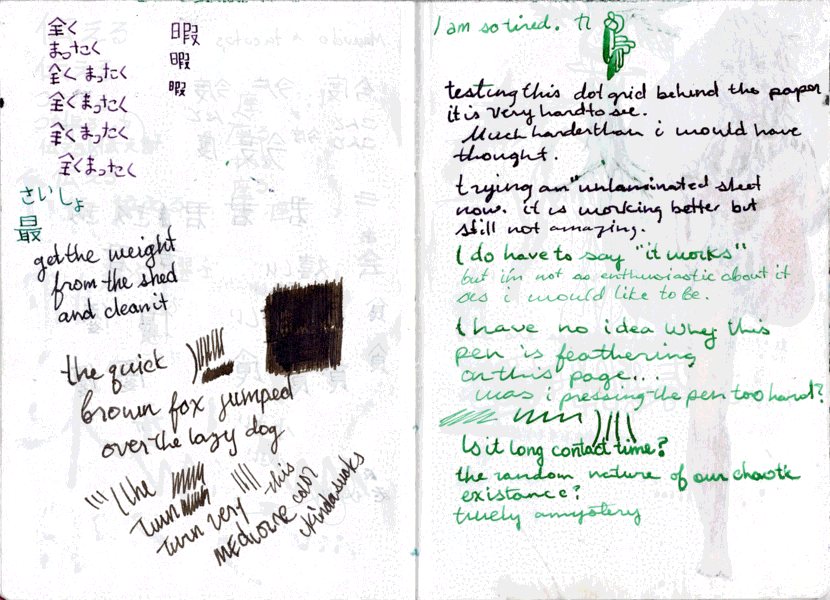 全く
まったく
全く まったく
全くまったく
全くまったく
全くまったく
暇
暇
暇
さいしょ
最
get the weight
from the shed
and clean it
the quick
brown fox jumped
over the lazy dog
the
turn
turn very this
mediocre color
kinda sucks
I am so tired.
testing this dot grid behind the paper
it is very hard to see.
Much harder than i would have
thought.
trying an "unlaminated sheet
now. it is working better but
still not amazing.
I do have to say "it works"
but i'm not as enthusiastic about it
as i would like to be.
I have no idea whey this
pen is feathering
on this page...
was i pressing the pen too hard?
Is it long contact time?
the random nature of our chaotic
existance?
truely a mystery